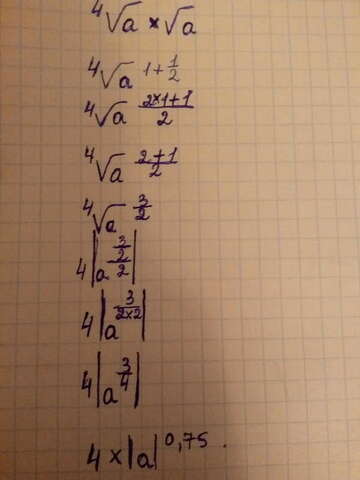 ⁴√a × √a
⁴√a 1+1/2
⁴√a (2×1+1)/2
⁴√a (2+1)/2
⁴√a 3/2
4|a^((3/2)/2)|
4|a^(3/(2×2))|
4|a^(3/4)|
4×|a|^0,75.